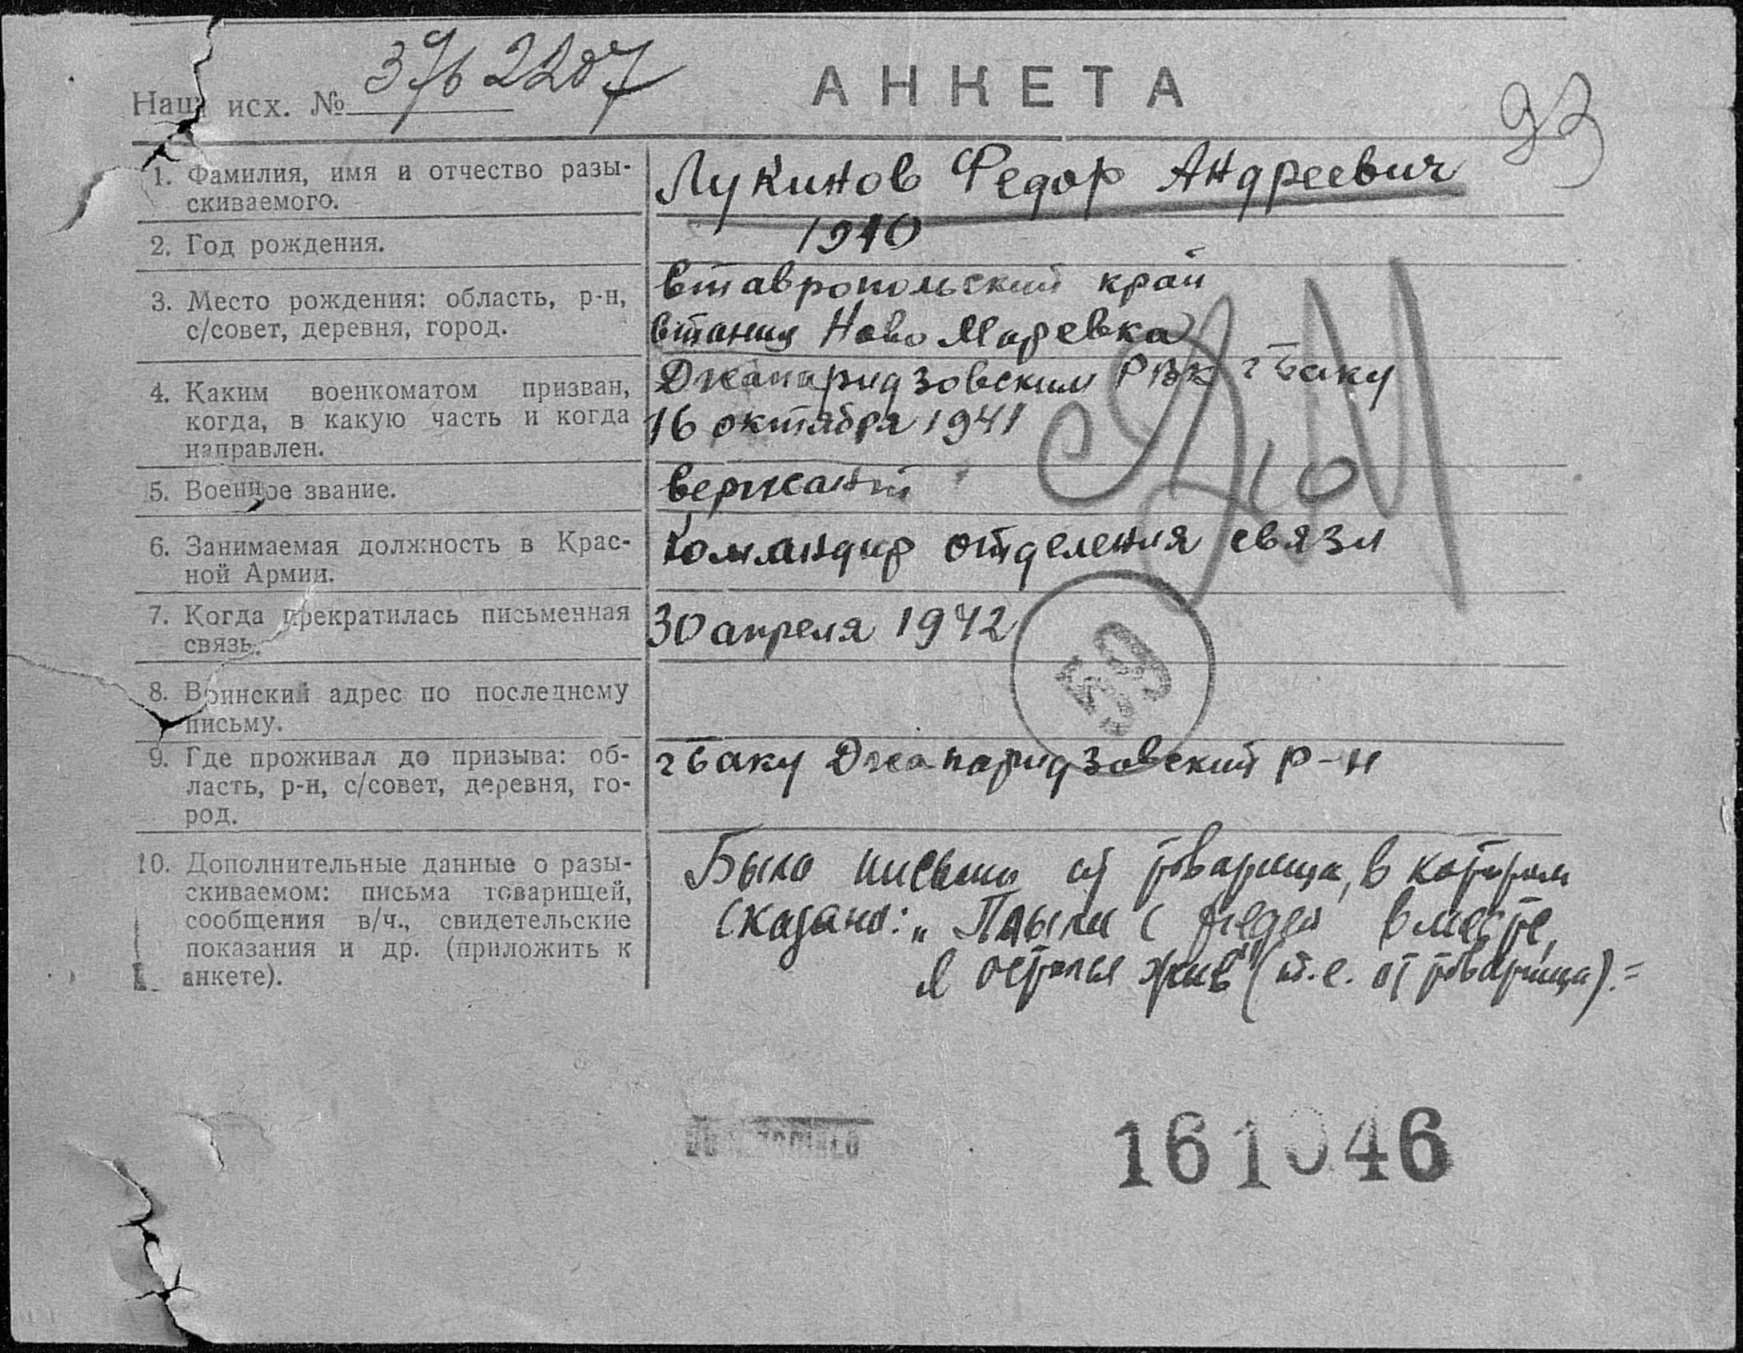 АНКЕТА
Наш исх. №
93
1. Фамилия, имя и отчество разы-
скиваемого.
Лукинов Федор Андреевич
2. Год рождения.
1910
3. Место рождения: область, р-н,
с/совет, деревня, город.
Ставропольский край
Станиц Ново Маревка
4. Каким военкоматом призван,
когда, в какую часть и когда
направлен.
Джапаридзовским РВК г Баку
16 октября 1941
5. Военное звание.
Сержант
6. Занимаемая должность в Крас-
ной Армии.
Командир отделения связи
7. Когда прекратилась письменная
связь.
30 апреля 1942
59
8. Воинский адрес по последнему
письму.
9. Где проживал до призыва: об-
ласть, р-н, с/совет, деревня, го-
род.
г Баку Джапаридзовский р-н
10. Дополнительные данные о разы-
скиваемом: письма товарищей,
сообщения в/ч., свидетельские
показания и др. (приложить к
анкете).
Было письмо от товарища, в котором
сказано: „Плыли с Федей вместе,
я остался жив" (т.е. от товарища).=
161046